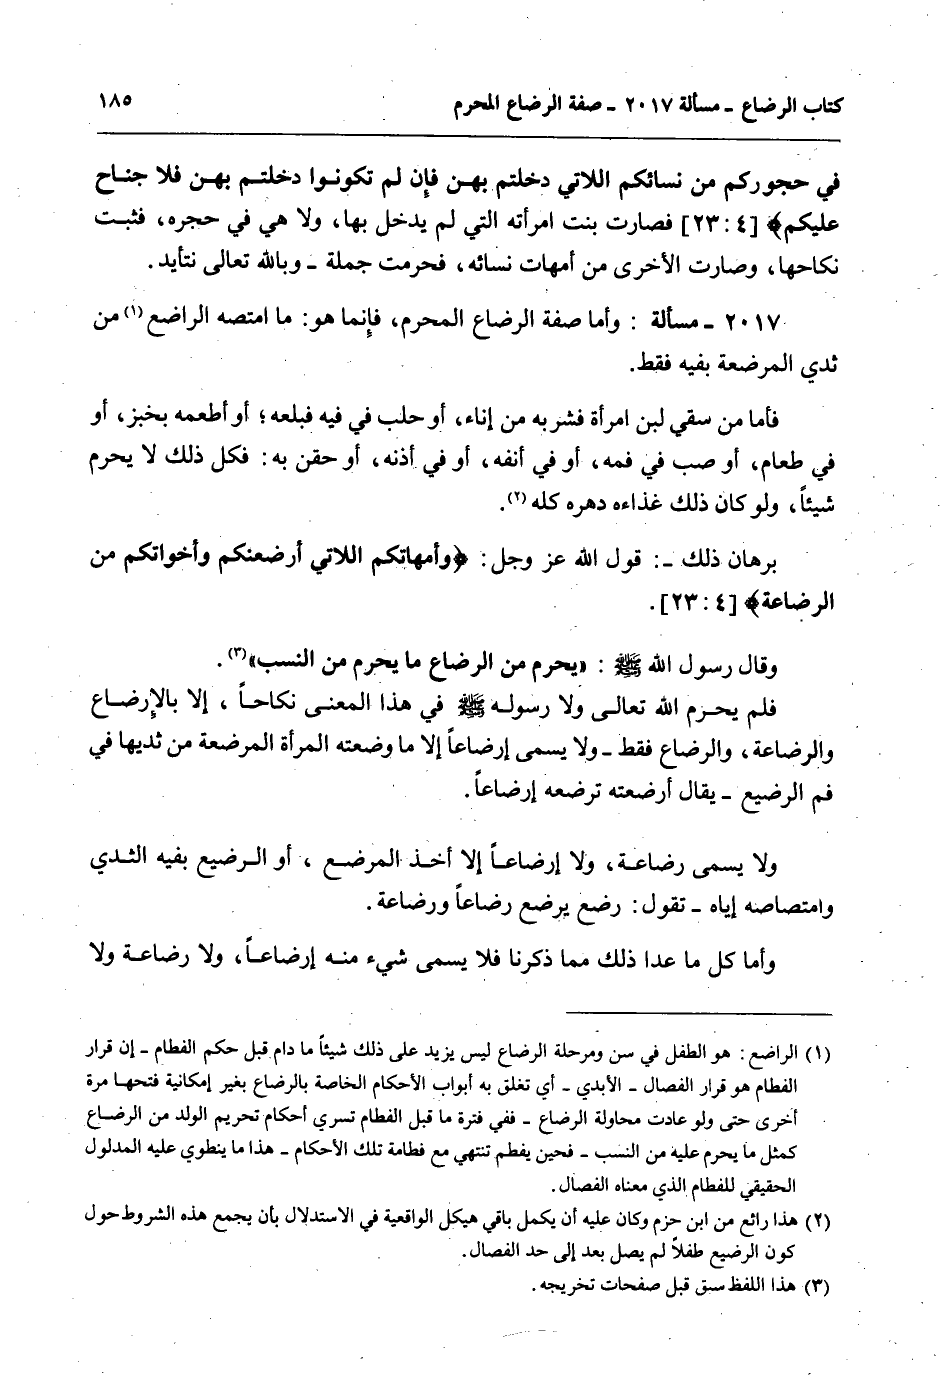 كتاب الرضاع ـ مسألة ٢٠١٧ ـ صفة الرضاع المحرم ١٨٥
في حجوركم من نسائكم اللاتي دخلتم بهن فإن لم تكونوا دخلتم بهن فلا جناح
عليكم﴾ [٤ : ٢٣] فصارت بنت امرأته التي لم يدخل بها، ولا هي في حجره، فثبت
نكاحها، وصارت الأخرى من أمهات نسائه، فحرمت جملة ـ وبالله تعالى نتأيد.
٢٠١٧ ـ مسألة : وأما صفة الرضاع المحرم، فإنما هو: ما امتصه الراضع(١) من
ثدي المرضعة بفيه فقط.
فأما من سقي لبن امرأة فشربه من إناء، أو حلب في فيه فبلعه؛ أو أطعمه بخبز، أو
في طعام، أو صب في فمه، أو في أنفه، أو في أذنه، أو حقن به: فكل ذلك لا يحرم
شيئاً، ولو كان ذلك غذاءه دهره كله(٢).
برهان ذلك ـ: قول الله عز وجل: ﴿وأمهاتكم اللاتي أرضعنكم وأخواتكم من
الرضاعة﴾ [٤ : ٢٣].
وقال رسول الله ﷺ : «يحرم من الرضاع ما يحرم من النسب»(٣).
فلم يحرم الله تعالى ولا رسوله ﷺ في هذا المعنى نكاحاً ، إلا بالإرضاع
والرضاعة، والرضاع فقط ـ ولا يسمى إرضاعاً إلا ما وضعته المرأة المرضعة من ثديها في
فم الرضيع ـ يقال أرضعته ترضعه إرضاعاً.
ولا يسمى رضاعة، ولا إرضاعاً إلا أخذ المرضع ، أو الرضيع بفيه الثدي
وامتصاصه إياه ـ تقول: رضع يرضع رضاعاً ورضاعة.
وأما كل ما عدا ذلك مما ذكرنا فلا يسمى شيء منه إرضاعاً، ولا رضاعة ولا
(١) الراضع: هو الطفل في سن ومرحلة الرضاع ليس يزيد على ذلك شيئاً ما دام قبل حكم الفطام ـ إن قرار
الفطام هو قرار الفصال ـ الأبدي ـ أي تغلق به أبواب الأحكام الخاصة بالرضاع بغير إمكانية فتحها مرة
أخرى حتى ولو عادت محاولة الرضاع ـ ففي فترة ما قبل الفطام تسري أحكام تحريم الولد من الرضاع
كمثل ما يحرم عليه من النسب ـ فحين يفطم تنتهي مع فطامة تلك الأحكام ـ هذا ما ينطوي عليه المدلول
الحقيقي للفطام الذي معناه الفصال.
(٢) هذا رائع من ابن حزم وكان عليه أن يكمل باقي هيكل الواقعية في الاستدلال بأن يجمع هذه الشروط حول
كون الرضيع طفلاً لم يصل بعد إلى حد الفصال.
(٣) هذا اللفظ سبق قبل صفحات تخريجه.